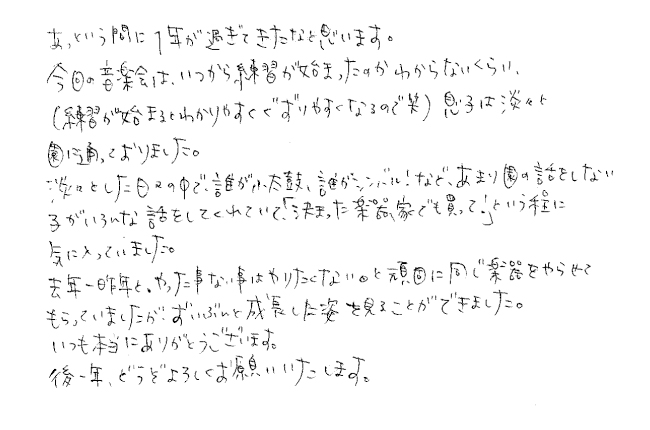 あっという間に1年が過ぎてきたなと思います。
今回の音楽会は、いつから練習が始まったのかわからないくらい、
(練習が始まるとわかりやすくぐずりやすくなるので笑) 息子は淡々と
園に通っておりました。
淡々とした日々の中で、誰が小太鼓、誰がシンバル!など、あまり園の話をしない
子がいろんな話をしてくれていて、「決まった楽器、家でも買って!」という程に
気に入っていました。
去年一昨年と、やった事ない事はやりたくない。と頑固に同じ楽器をやらせて
もらっていましたが、ずいぶんと成長した姿を見ることができました。
いつも本当にありがとうございます。
後一年、どうぞよろしくお願いいたします。